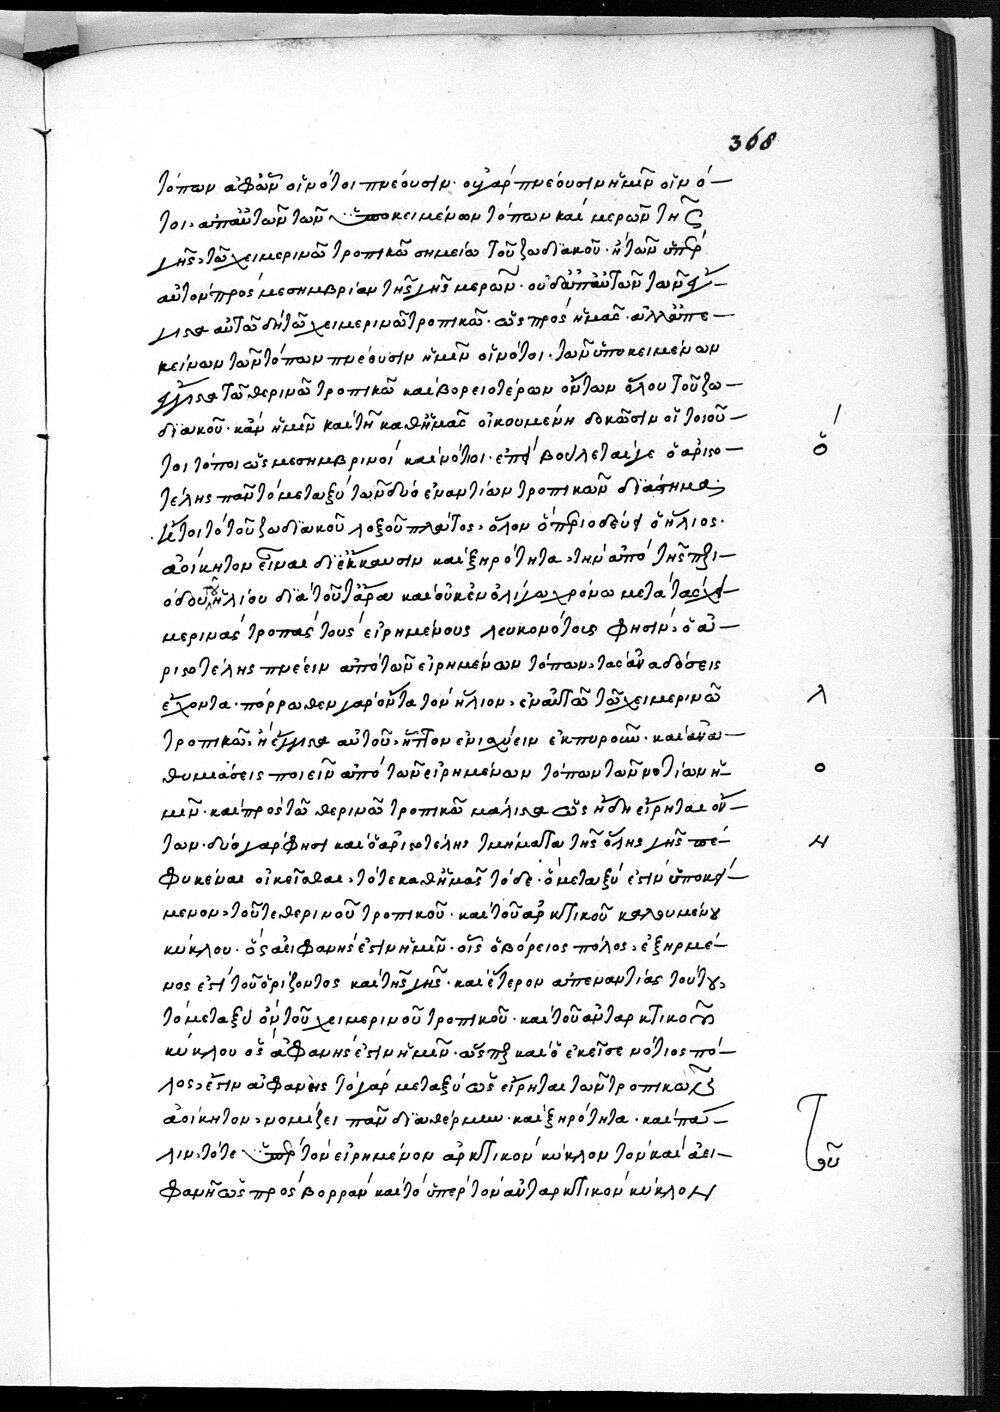 368
τόπων ἀφ' ὧν οἱ νότοι πνέουσιν· οὐ γὰρ πνέουσιν ἡμῖν οἱ νό-
τοι, ἀπ' αὐτῶν τῶν ὑποκειμένων τόπων καὶ μερῶν τῆς
γῆς, τῶ χειμερινῶ τροπικῶ σημείω τοῦ ζωδιακοῦ· ἢ τῶν ὑπὲρ
αὐτὸν πρὸς μεσημβρίαν τῆς γῆς μερῶν· οὐδ' ἀπ' αὐτῶν τῶν ἔγ-
γιστα αὐτῶ δὴ τῶ χειμερινῶ τροπικῶ· ὡς πρὸς ἡμᾶς· ἀλλ' ἀπ' ἐ-
κείνων τῶν τόπων πνέουσιν ἡμῖν οἱ νότοι· τῶν ὑποκειμένων
ἔγγιστα τῶ θερινῶ τροπικῶ καὶ βορειοτέρων ὄντων ὅλου τοῦ ζω-
διακοῦ· κἂν ἡμῖν καὶ τῆ καθ' ἡμᾶς οἰκουμένη δοκῶσιν οἱ τοιοῦ-
τοι τόποι ὡς μεσημβρινοὶ καὶ νότιοι· ἐπεὶ βούλεταί γε ὁ ἀριστο-
τέλης πᾶν τὸ μεταξὺ τῶν δύο ἐναντίων τροπικῶν διάστημα·
ἤτοι τὸ τοῦ ζωδιακοῦ λοξοῦ πλάτος, ὅλον ὃ περιοδεύει ὁ ἥλιος·
ἀοίκητον εἶναι δι' ἔκκαυσιν καὶ ξηρότητα, τὴν ἀπὸ τῆς περι-
όδου τοῦ ἡλίου διὰ τοῦτ' ἄρα καὶ οὐκ ἐν ὀλίγω χρόνω μετὰ τὰς χει-
μερινὰς τροπὰς τοὺς εἰρημένους λευκονότους φησὶν, ὁ ἀ-
ριστοτέλης πνέειν ἀπὸ τῶν εἰρημένων τόπων, τὰς ἀναδόσεις
ἔχοντα· πόρρωθεν γὰρ ὄντα τὸν ἥλιον, ἐν αὐτῶ τῶ χειμερινῶ
τροπικῶ, ἢ ἔγγιστα αὐτοῦ, ἧττον ἐνισχύειν ἐκπυροῦν· καὶ ἀνα-
θυμιάσεις ποιεῖν ἀπὸ τῶν εἰρημένων τόπων τῶν νοτίων ἡ-
μῖν· καὶ πρὸς τῶ θερινῶ τροπικῶ μάλιστα ὡς ἤδη εἴρηται ὄν-
των· δύο γάρ φησι καὶ ὁ ἀριστοτέλης τμήματα τῆς ὅλης γῆς πε-
φυκέναι οἰκεῖσθαι, τό τε καθ' ἡμᾶς τόδε· ὃ μεταξύ ἐστιν ὑποκεί-
μενον, τοῦ τε θερινοῦ τροπικοῦ· καὶ τοῦ ἀρκτικοῦ καλουμένου
κύκλου· ὃς ἀειφανής ἐστιν ἡμῖν· οἷς ὁ βόρειος πόλος, ἐξηρμέ-
νος ἐστὶ τοῦ ὁρίζοντος καὶ τῆς γῆς· καὶ ἕτερον ἀπεναντίας τούτου,
τὸ μεταξὺ ὂν τοῦ χειμερινοῦ τροπικοῦ· καὶ τοῦ ἀνταρκτικοῦ
κύκλου ὃς ἀφανής ἐστιν ἡμῖν· ὥσπερ καὶ ὁ ἐκεῖσε νότιος πό-
λος, ἐστὶν ἀφανὴς τὸ γὰρ μεταξὺ ὡς εἴρηται τῶν τροπικῶν
ἀοίκητον, νομίζει πᾶν διὰ θέρμην· καὶ ξηρότητα· καὶ πά-
λιν, τό τε ὑπὲρ τὸν εἰρημένον ἀρκτικὸν κύκλον τὸν καὶ ἀει-
φανῆ ὡς πρὸς βορρᾶν καὶ τὸ ὑπὲρ τὸν ἀνταρκτικὸν κύκλον
ὅ
λ
ο
ν
τοῦ